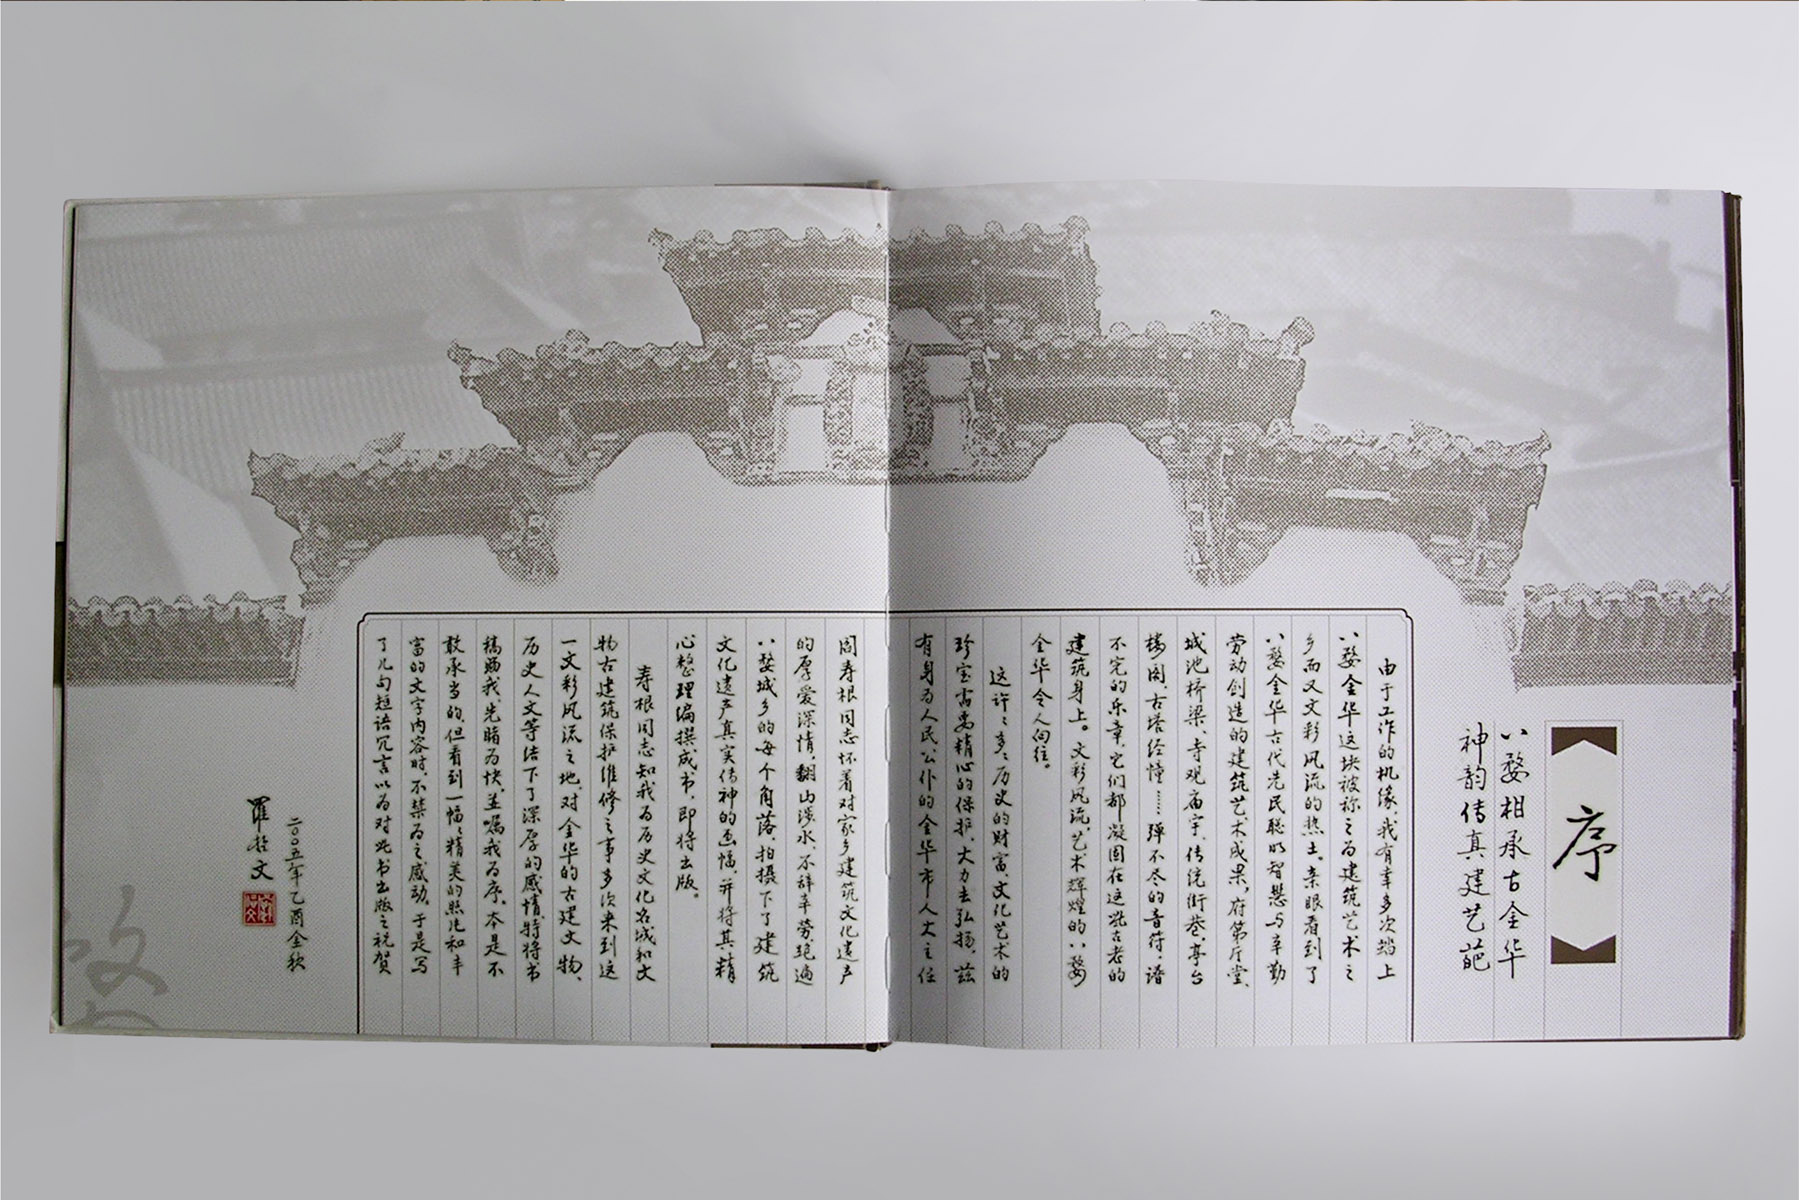 序
八婺相承古金华
神韵传真建艺葩
由于工作的机缘，我有幸多次踏上
八婺金华这块被称之为建筑艺术之
乡而又文彩风流的热土。亲眼看到了
八婺金华古代先民聪明智慧与辛勤
劳动创造的建筑艺术成果，府第厅堂、
城池桥梁、寺观庙宇、传统街巷、亭台
楼阁、古塔经幢……弹不尽的音符，谱
不完的乐章，它们都凝固在这些古老的
建筑身上。文彩风流，艺术辉煌的八婺
金华令人向往。
这许许多多历史的财富、文化艺术的
珍宝需要精心的保护，大力去弘扬，兹
有身为人民公仆的金华市人大主任
周寿根同志怀着对家乡建筑文化遗产
的厚爱深情，翻山涉水，不辞辛劳，跑遍
八婺城乡的每个角落，拍摄下了建筑
文化遗产真实传神的画幅，并将其精
心整理编撰成书，即将出版。
寿根同志知我为历史文化名城和文
物古建筑保护维修之事多次来到这
一文彩风流之地，对金华的古建文物、
历史人文等结下了深厚的感情，特将书
稿赐我，先睹为快，并嘱我为序。本是不
敢承当的，但看到一幅幅精美的照片和丰
富的文字内容时，不禁为之感动，于是写
了几句短语冗言以为对此书出版之祝贺
二〇〇五年乙酉金秋
罗哲文